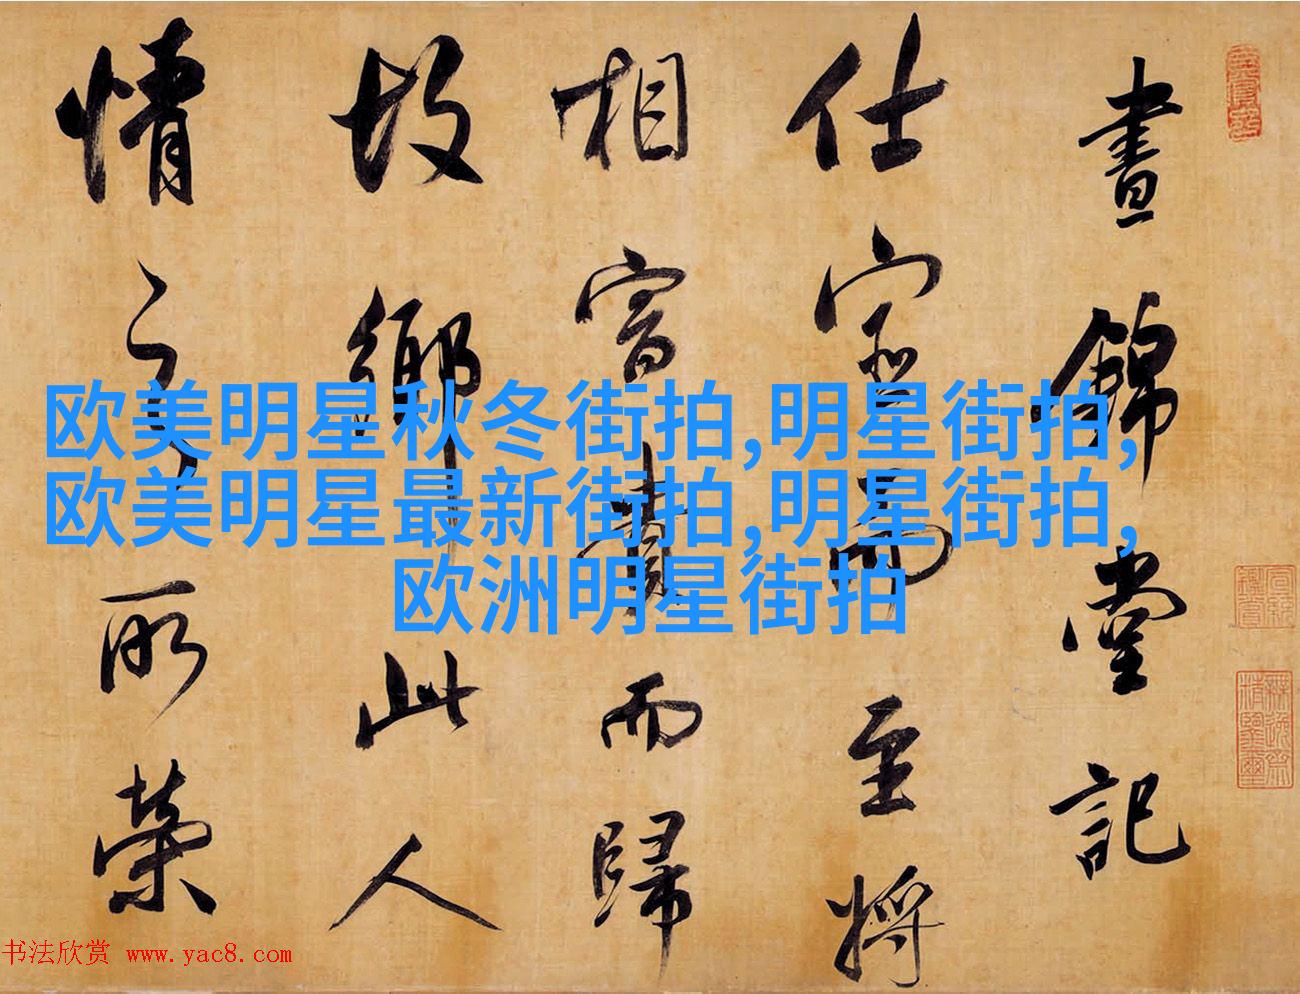 晝錦堂記
仕宦而至將
相富貴而歸
故鄉此人
情之所榮
欧美明星秋冬街拍,明星街拍,
欧美明星最新街拍,明星街拍,
欧洲明星街拍
书法欣赏 www.yac8.com